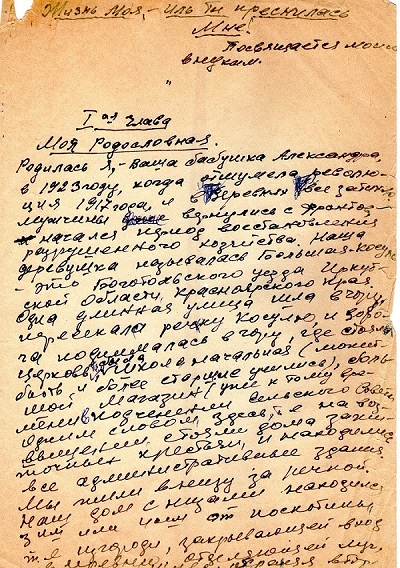 Жизнь Моя, - иль ты приснилась
Мне.
Посвящается моим
внукам.
I ая глава
Моя Родословная.
Родилась я, - ваша бабушка Александра,
в 1923 году, когда отшумела револю-
ция 1917 года, и в деревня все затихло
мужчины вернулись с фронтов-
начался период восстановления
разрушенного хозяйства. Наша
деревушка называлась Большая-Косуль
- это Боготольского уезда Иркут-
ской области, Красноярского края.
Одна длинная улица шла в гору,
пересекала речку Косулю, и доро-
га поднималась в гору, где стояла
церковь, была школа начальная (может
быть и более старше учились), боль-
шой магазин (уже к тому вре-
мени в подчинении сельского Совета
Одним словом здесь, т.е на воз-
вышении стояли дома зажи-
точных крестьян, и находились
все административные здания
Мы жили внизу за речкой.
Наш дом с находился
от поскотины,
т.е изгороди, закрывающей вход
в деревню, отделяющей